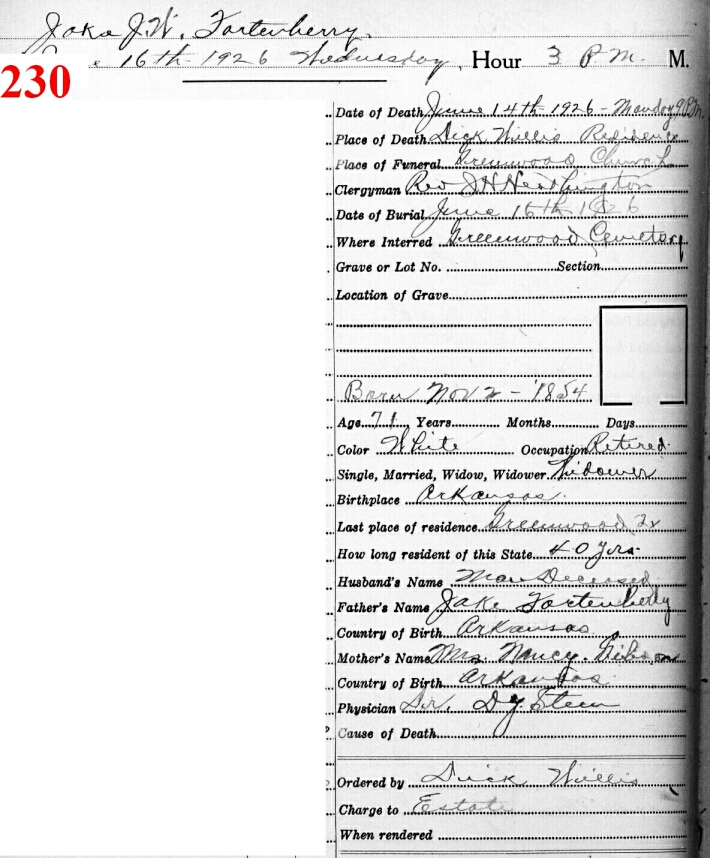 Jake J.W. Fortenberry
16th 1926 Wednesday, Hour 3 P.M. M.
230
Date of Death June 14th 1926 - Monday 9 P.M.
Place of Death Dick Willis Residence
Place of Funeral Greenwood Church
Clergyman Rev J H
Date of Burial June 16th 1926
Where Interred Greenwood Cemetery
Grave or Lot No. Section
Location of Grave
Born Nov 2 - 1854
Age 71 Years Months Days
Color White Occupation Retired
Single, Married, Widow, Widower Widower
Birthplace Arkansas.
Last place of residence Greenwood Tx
How long resident of this State 40 yrs.
Husband's Name Deceased
Father's Name Jake Fortenberry
Country of Birth Arkansas
Mother's Name Mrs. Nancy Gibson
Country of Birth Arkansas.
Physician Dr.
Cause of Death
Ordered by Dick Willis
Charge to Estate
When rendered